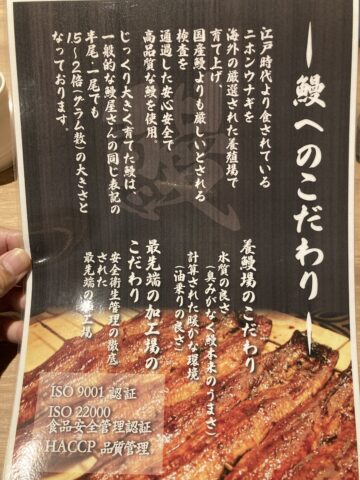 鰻へのこだわり
江戸時代より食されている
ニホンウナギを
海外の厳選された養殖場で
育て上げ、
国産鰻よりも厳しいとされる
検査を
通過した安心安全で
高品質な鰻を使用。
じっくり大きく育てた鰻は、
一般的な鰻屋さんの同じ表記の
半尾・一尾でも
1.5〜2倍(グラム数)の大きさと
なっております。
鰻
養鰻場のこだわり
水質の良さ
(臭みがなく鰻本来のうまさ)
計算された暖かな環境
(油乗りの良さ)
最先端の加工場の
こだわり
安全衛生管理の徹底
された
最先端の加工場
ISO 9001 認証
ISO 22000
食品安全管理認証
HACCP 品質管理